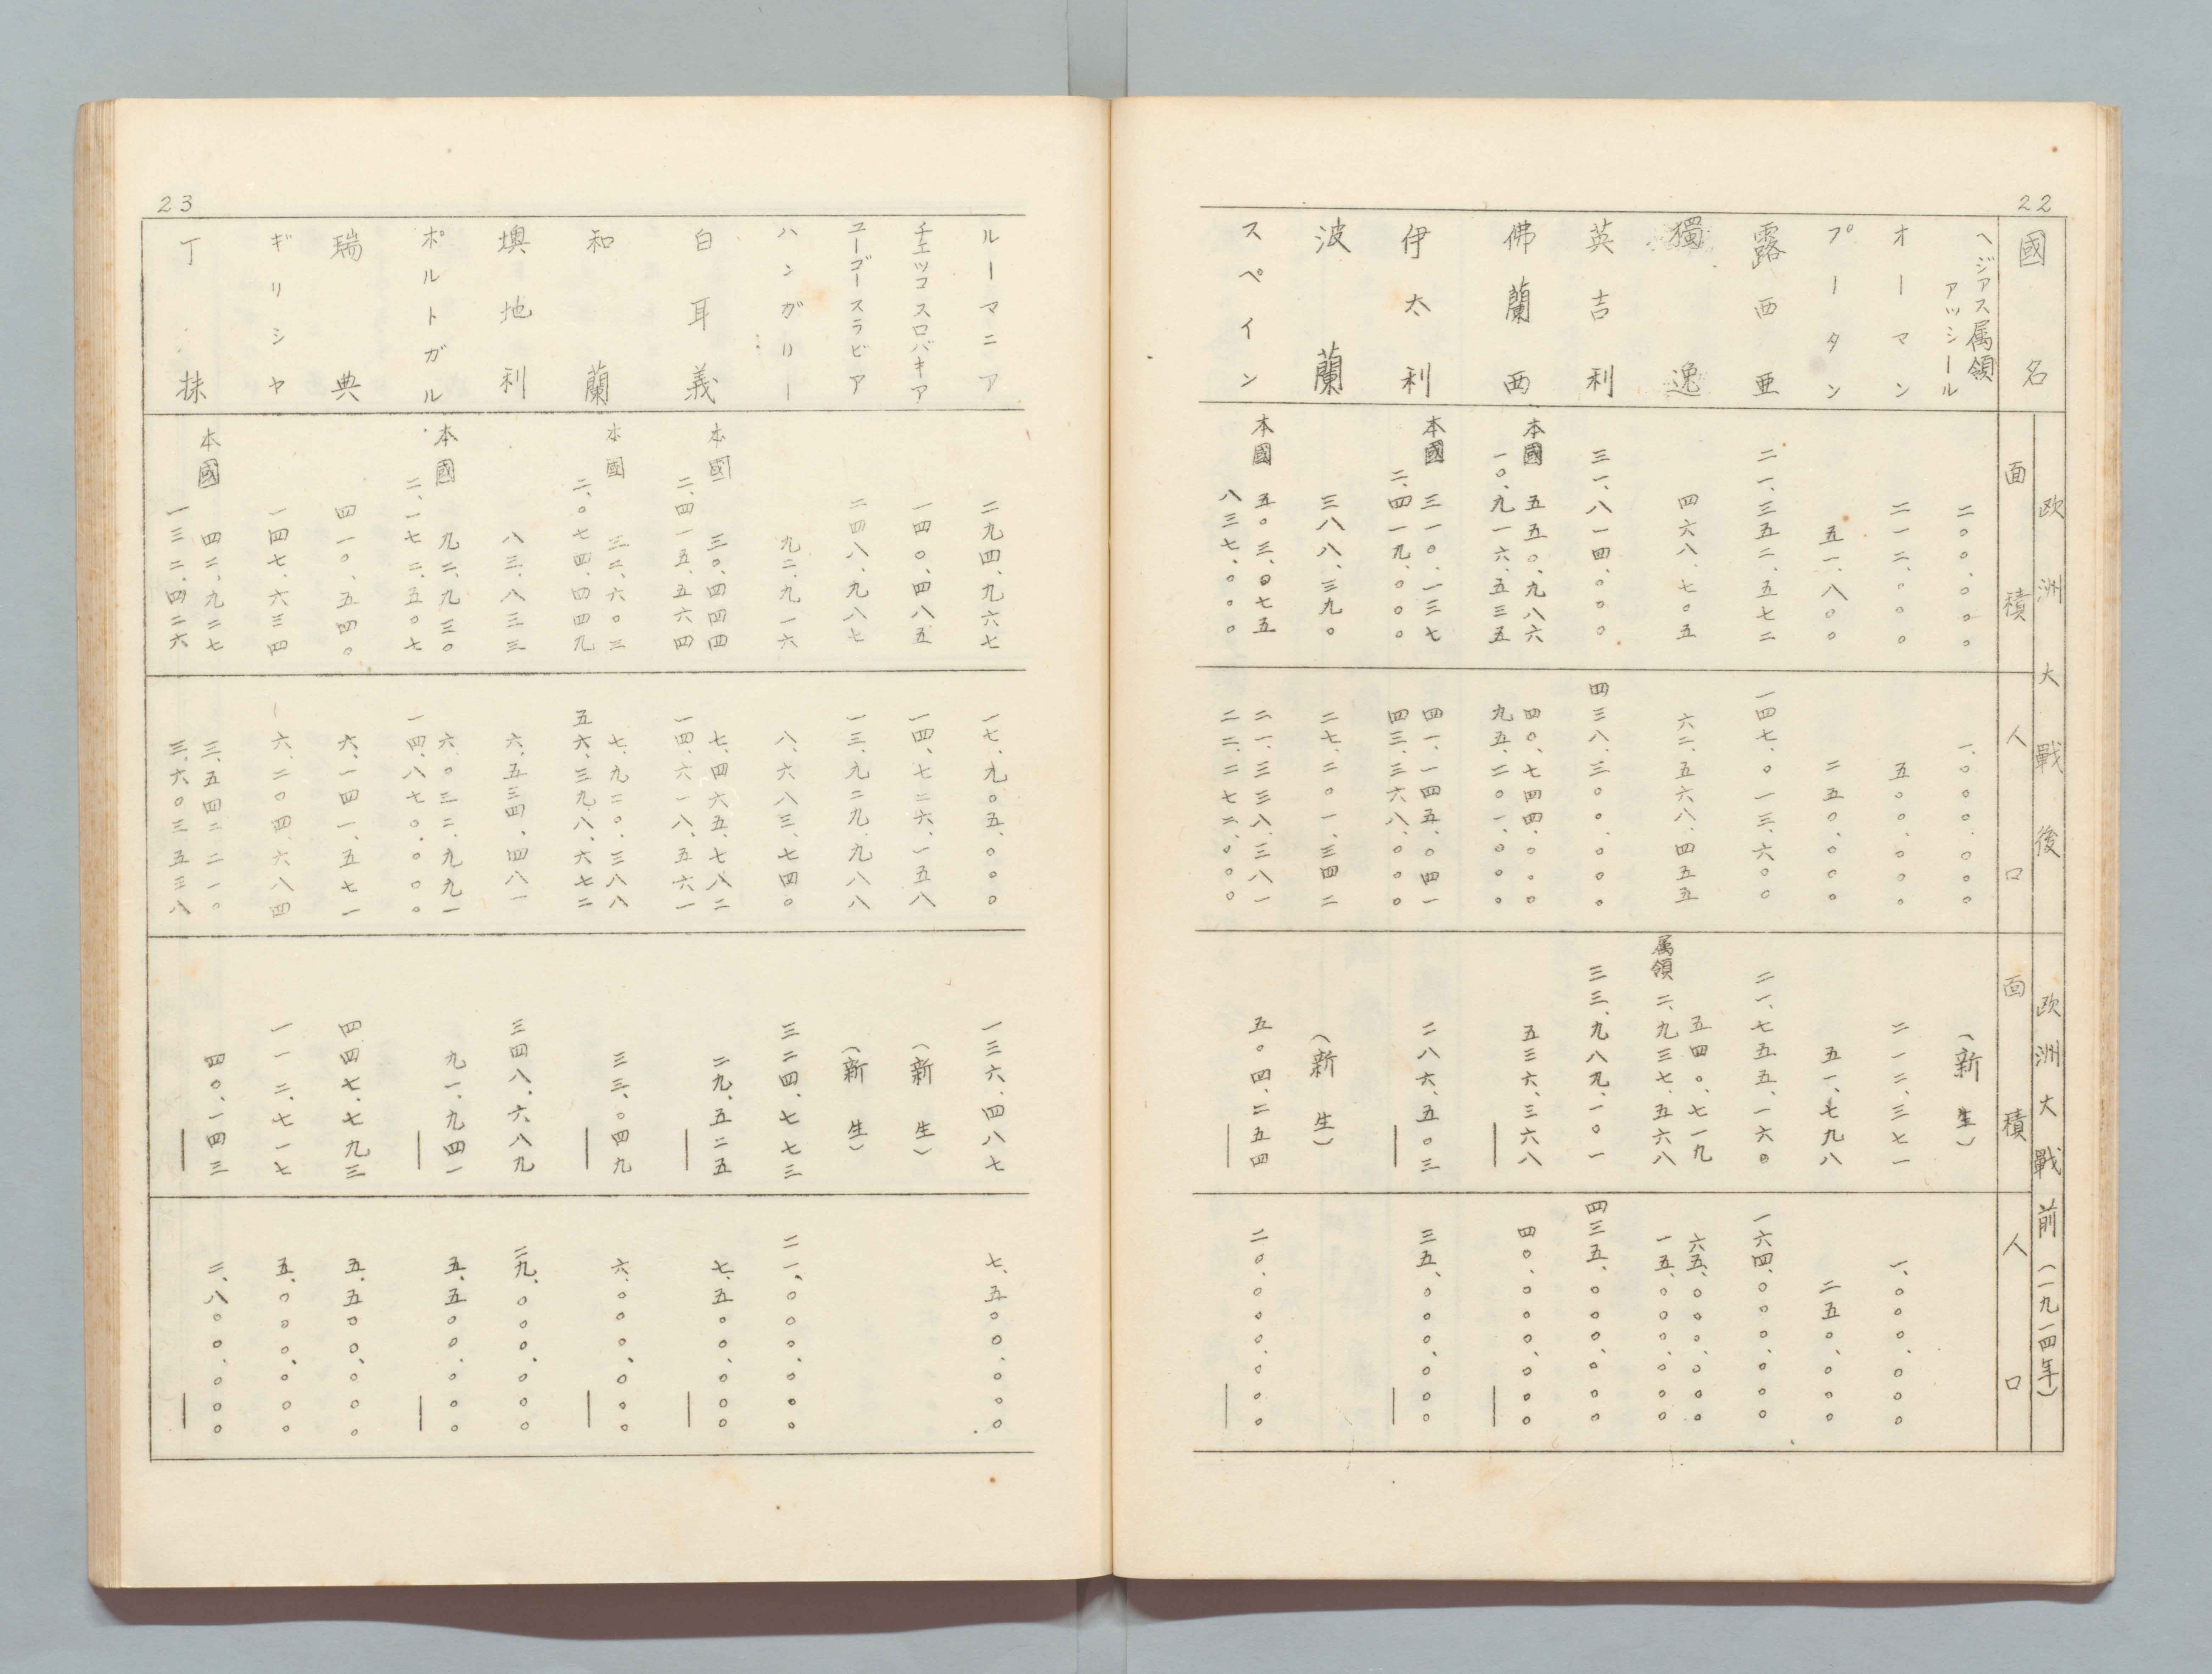 22
國名
欧洲大戰後
面積
人口
欧洲大戰前（一九一四年）
面積
人口
ヘジアス属領
アッシール
二〇〇、〇〇〇
一、〇〇〇、〇〇〇
（新生）
オーマン
二一二、〇〇〇
五〇〇、〇〇〇
二一二、三七一
一、〇〇〇、〇〇〇
プータン
五一、八〇〇
二五〇、〇〇〇
五一、七九八
二五〇、〇〇〇
露西亜
二一、三五二、五七二
一四七、〇一三、六〇〇
二一、七五五、一六〇
一六四、〇〇〇、〇〇〇
獨逸
四六八、七〇五
六二、五六八、四五五
五四〇、七一九
属領 二、九三七、五六八
六五、〇〇〇、〇〇〇
一五、〇〇〇、〇〇〇
英吉利
三一、八一四、〇〇〇
四三八、三〇〇、〇〇〇
三三、九八九、一〇一
四三五、〇〇〇、〇〇〇
佛蘭西
本國 五五〇、九八六
一〇、九一六、五三五
四〇、七四四、〇〇〇
九五、二〇一、〇〇〇
五三六、三六八
四〇、〇〇〇、〇〇〇
伊太利
本國 三一〇、一三七
二、四一九、〇〇〇
四一、一四五、〇四一
四三、三六八、〇〇〇
二八六、五〇三
三五、〇〇〇、〇〇〇
波蘭
三八八、三九〇
二七、二〇一、三四二
（新生）
スペイン
本國 五〇三、〇七五
八三七、〇〇〇
二一、三三八、三八一
二二、二七二、〇〇〇
五〇四、二五四
二〇、〇〇〇、〇〇〇
23
ルーマニア
二九四、九六七
一七、九〇五、〇〇〇
一三六、四八七
七、五〇〇、〇〇〇
チエツコスロバキア
一四〇、四八五
一四、七二六、一五八
（新生）
ユーゴースラビア
二四八、九八七
一三、九二九、九八八
（新生）
ハンガリー
九二、九一六
八、六八三、七四〇
三二四、七七三
二一、〇〇〇、〇〇〇
白耳義
本國 三〇、四四四
二、四一五、五六四
七、四六五、七八二
一四、六一八、五六一
二九、五二五
七、五〇〇、〇〇〇
和蘭
本國 三二、六〇三
二、〇七四、四四九
七、九二〇、三八八
五六、三九八、六七二
三三、〇四九
六、〇〇〇、〇〇〇
墺地利
八三、八三三
六、五三四、四八一
三四八、六八九
二九、〇〇〇、〇〇〇
ポルトガル
本國 九二、九三〇
二、一七二、五〇七
六、〇三二、九九一
一四、八七〇、〇〇〇
九一、九四一
五、五〇〇、〇〇〇
瑞典
四一〇、五四〇
六、一四一、五七一
四四七、七九三
五、五〇〇、〇〇〇
ギリシヤ
一四七、六三四
六、二〇四、六八四
一一二、七一七
五、〇〇〇、〇〇〇
丁抹
本國 四二、九二七
一三二、四二六
三、五四二、二一〇
三、六〇三、五三八
四〇、一四三
二、八〇〇、〇〇〇